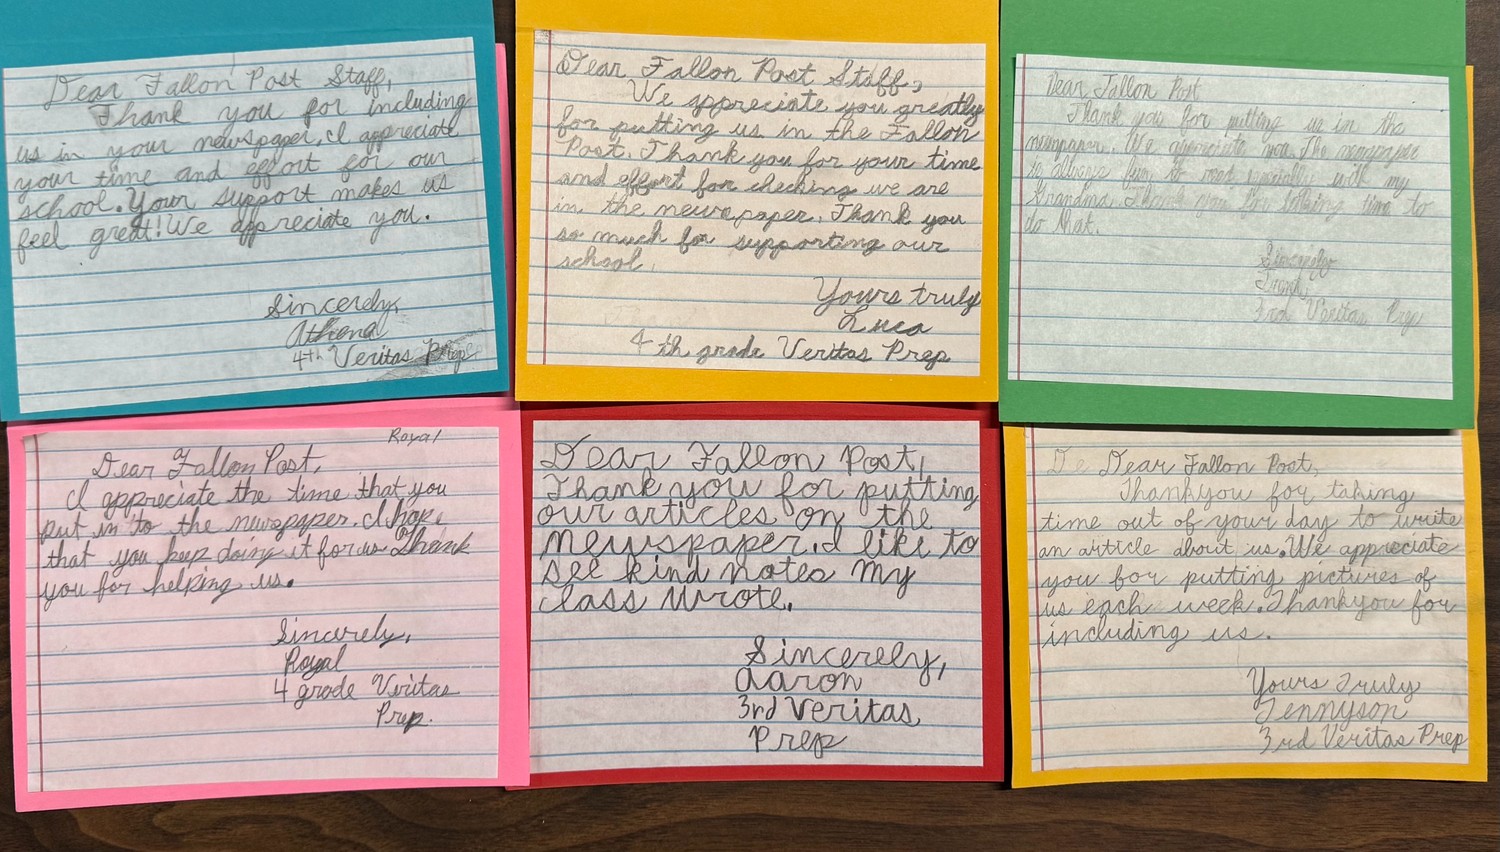 Dear Fallon Post Staff,
Thank you for including
us in your newspaper. I appreciate
your time and effort for our
school. Your support makes us
feel great! We appreciate you.
Sincerely,
Athena
4th Veritas Prep
Dear Fallon Post Staff,
We appreciate you greatly
for putting us in the Fallon
Post. Thank you for your time
and effort for checking we are
in the newspaper. Thank you
so much for supporting our
school.
Yours truly
Luca
4th grade Veritas Prep
Dear Fallon Post
Thank you for putting us in the
newspaper. We appreciate you. The newspaper
is always fun to read especially with my
Grandma. Thank you for taking time to
do that.
Sincerely
3rd Veritas Prep
Royal
Dear Fallon Post,
I appreciate the time that you
put in to the newspaper. I hope
that you keep doing it for us. Thank
you for helping us.
Sincerely,
Royal
4 grade Veritas
Prep.
Dear Fallon Post,
Thank you for putting
our articles on the
newspaper. I like to
see kind notes my
class wrote.
Sincerely,
Aaron
3rd Veritas
Prep
De Dear Fallon Post,
Thankyou for taking
time out of your day to write
an article about us. We appreciate
you for putting pictures of
us each week. Thankyou for
including us.
Yours Truly
Tennyson
3rd Veritas Prep